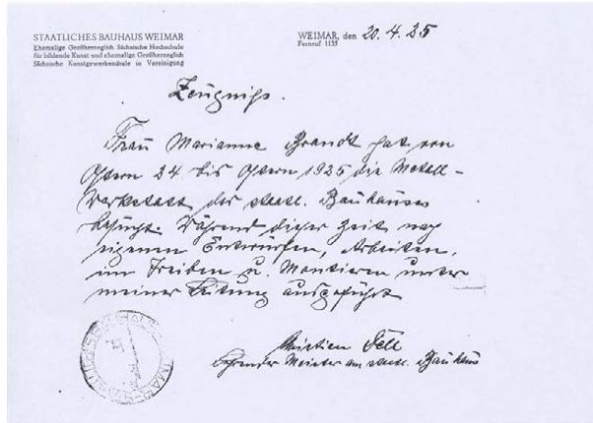 STAATLICHES BAUHAUS WEIMAR
Ehemalige Großherzoglich Sächsische Hochschule
für bildende Kunst und ehemalige Großherzoglich
Sächsische Kunstgewerbeschule in Vereinigung
WEIMAR, den 20.4.25
Fernruf 1135
Zeugniss.
Frau Marianne Brandt hat von
Ostern 24 bis Ostern 1925 die Metall-
Werkstatt des staatl. Bauhauses
besucht. Während dieser Zeit nach
eigenen Entwürfen, Arbeiten,
im Treiben u. Montieren unter
meiner Leitung ausgeführt
Christian Dell
Meister am staatl. Bauhaus